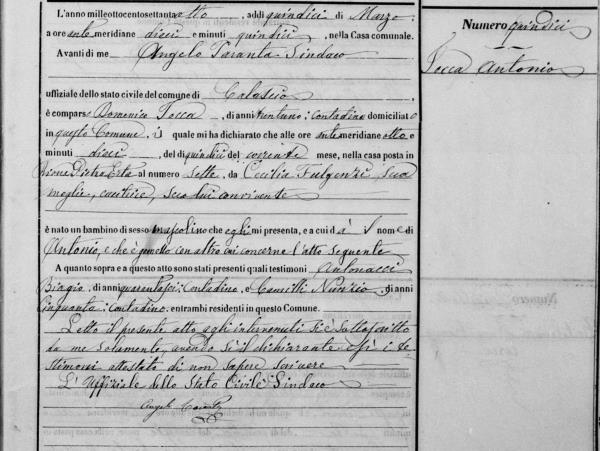 L'anno milleottocentosettantaotto, addì quindici di Marzo
a ore ante meridiane dieci e minuti quindici, nella Casa comunale.
Avanti di me Angelo Taranta Sindaco
uffiziale dello stato civile del comune di Calascio
è comparso Domenico Tocca, di anni trentuno: Contadino domiciliato
in questo Comune, il quale mi ha dichiarato che alle ore antemeridiane otto e
minuti dieci, del dì quindici del corrente mese, nella casa posta in
Rione Pietra Erta al numero sette, da Cecilia Fulgenzi, sua
moglie, cucitrice, seco lui convivente
è nato un bambino di sesso mascolino che egli mi presenta, e a cui dà il nome di
Antonio, e che è gemello con altro cui concerne l'atto seguente
A quanto sopra e a questo atto sono stati presenti quali testimoni Antonacci
Biagio, di anni quarantasei: Contadino, e Nunzio, di anni
Cinquanta: Contadino, entrambi residenti in questo Comune.
Letto il presente atto agli intervenuti si è sottoscritto
da me solamente, avendo sì il dichiarante che i te-
stimoni attestato di non sapere scrivere
L'Uffiziale dello Stato Civile: Sindaco
Angelo Taranta
Numero quindici
Tocca Antonio